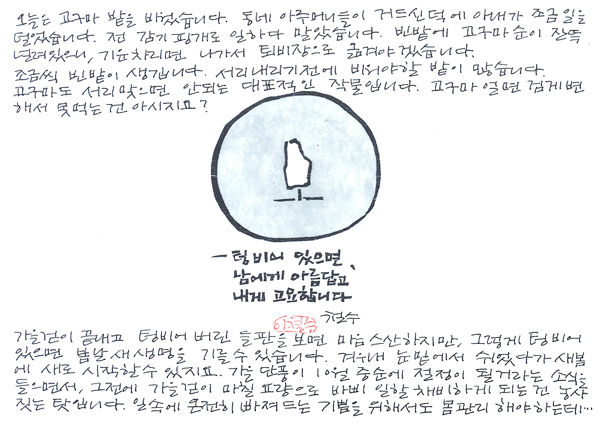 오늘은 고구마 밭을 비웠습니다. 동네 아주머니들이 거드신 덕에 아내가 조금 일을
덜었습니다. 전 감기 핑계로 일하다 말았습니다. 빈밭에 고구마순이 잔뜩
널려있으니, 기운차리면 나가서 퇴비장으로 옮겨야겠습니다.
조금씩 빈밭이 생깁니다. 서리내리기전에 비워야할 밭이 많습니다.
고구마도 서리맞으면 안되는 대표적인 작물입니다. 고구마 얼면 검게 변
해서 못먹는건 아시지요?
- 텅비어 있으면
남에게 아름답고,
내게 고요합니다
철수
이철수
가을걷이 끝내고 텅비어 버린 들판을 보면 마음 스산하지만, 그렇게 텅비어
있으면 봄날 새생명을 기를 수 있습니다. 겨우내 눈밑에서 쉬었다가 새봄
에 새로 시작할 수 있지요. 가을 단풍이 10월 중순에 절정이 될거라는 소식을
들으면서, 그전에 가을걷이 마칠 요량으로 바삐 일할 채비하게 되는건 농사
짓는 탓입니다. 일속에 온전히 빠져드는 기쁨을 위해서도 몸관리 해야하는데…